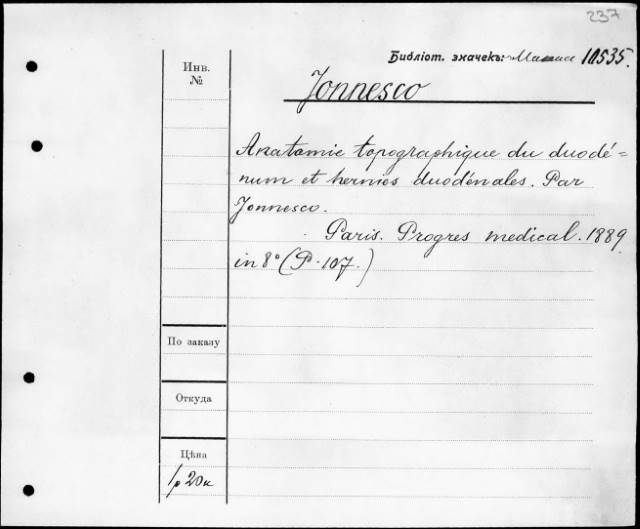 237
Библіот. значекъ: 11535.
Инв.
№
Jonnesco
Anatomie topographique du duodé=
num et hernies duodénales. Par
Jonnesco.
Paris. Progres medical. 1889
in 8° (P. 107.)
По заказу
Откуда
Цѣна
1р 20к